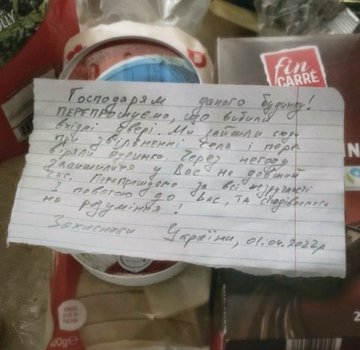 fin
CARRÉ
Господарям даного будинку!
ПЕРЕПРОШУЄМО, що вибили
вхідні двері. Ми зайшли сюди
при звільненні села і пере-
віряли будинки. Через негоду
залишилися у Вас на довший
час. Перепрошуємо за всі незручності
З повагою до Вас, та сподіваємося
на розуміння!
Захисники України, 01.04.2022р